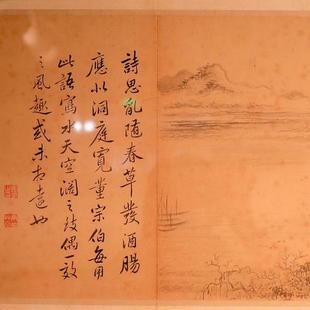 詩思亂隨春草發酒腸
應似洞庭寬董宗伯每用
此語寫水天空闊之致偶一效
之風趣或未相遠也